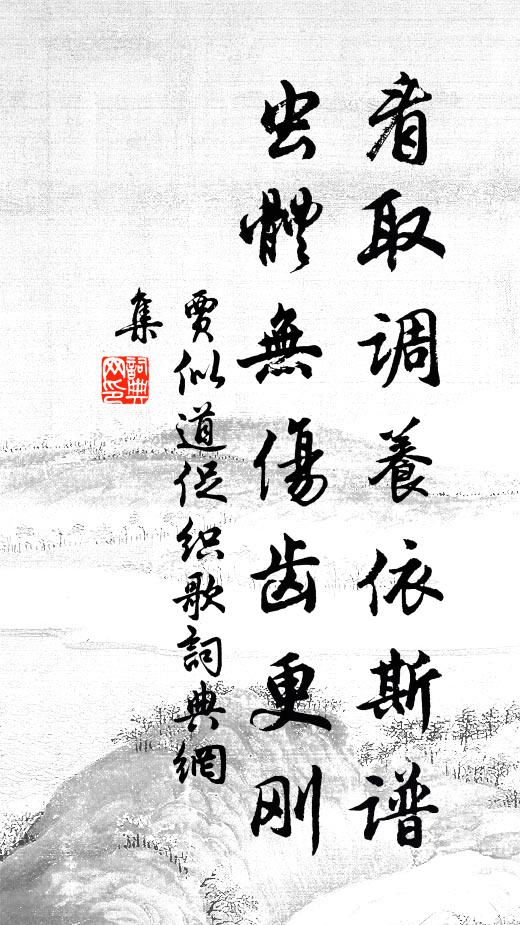 看取调養依斯谱
虫體無傷齿更刚
賈似道促织歌詞典網
集
詞典
网印